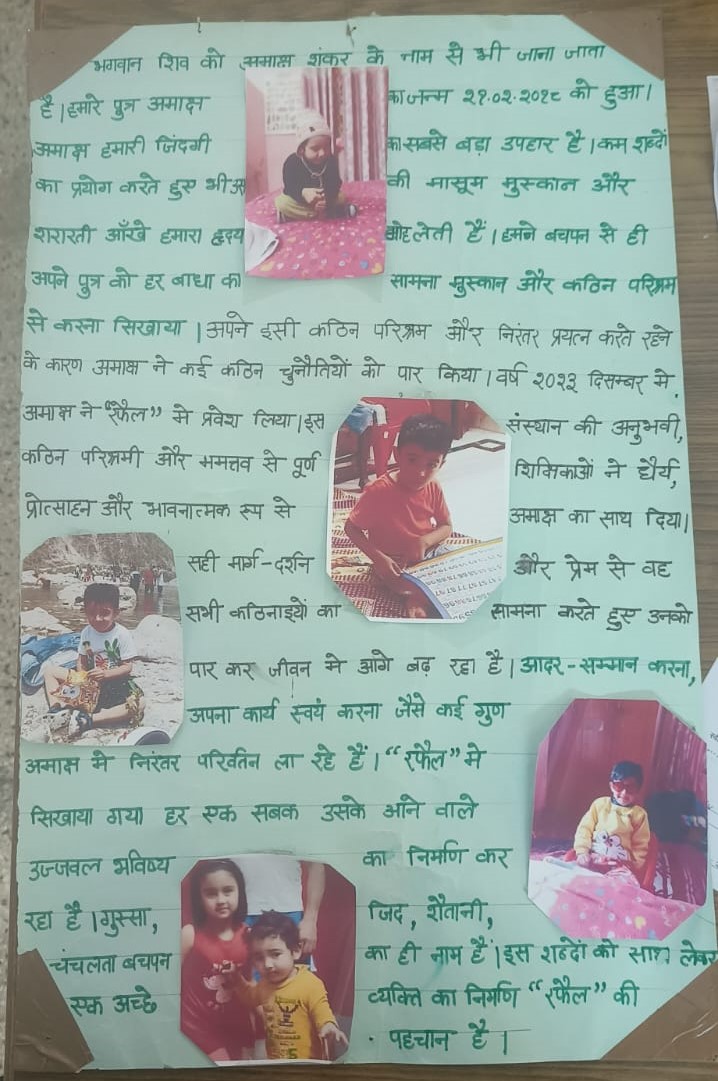 भगवान शिव को अमाक्ष शंकर के नाम से भी जाना जाता
है। हमारे पुत्र अमाक्ष का जन्म २१.०२.२०१८ को हुआ।
अमाक्ष हमारी जिंदगी का सबसे बड़ा उपहार है। कम शब्दों
का प्रयोग करते हुए भी उस की मासूम मुस्कान और
शरारती आँखे हमारा हृदय मोह लेती हैं। हमने बचपन से ही
अपने पुत्र को हर बाधा का सामना मुस्कान और कठिन परिश्रम
से करना सिखाया। अपने इसी कठिन परिश्रम और निरंतर प्रयत्न करते रहने
के कारण अमाक्ष ने कई कठिन चुनौतियों को पार किया। वर्ष २०२३ दिसम्बर मे
अमाक्ष ने "रफैल" मे प्रवेश लिया। इस संस्थान की अनुभवी,
कठिन परिश्रमी और ममत्तव से पूर्ण शिक्षिकाओं ने धैर्य,
प्रोत्साहन और भावनात्मक रूप से अमाक्ष का साथ दिया।
सही मार्ग-दर्शन और प्रेम से वह
सभी कठिनाइयों का सामना करते हुए उनको
पार कर जीवन मे आगे बढ़ रहा है। आदर-सम्मान करना,
अपना कार्य स्वयं करना जैसे कई गुण
अमाक्ष मे निरंतर परिवर्तन ला रहे हैं। "रफैल" मे
सिखाया गया हर एक सबक उसके आने वाले
उज्जवल भविष्य का निर्माण कर
रहा है। गुस्सा, जिद, शैतानी,
चंचलता बचपन का ही नाम हैं। इस शब्दों को साथ लेकर
एक अच्छे व्यक्ति का निर्माण "रफैल" की
पहचान है।